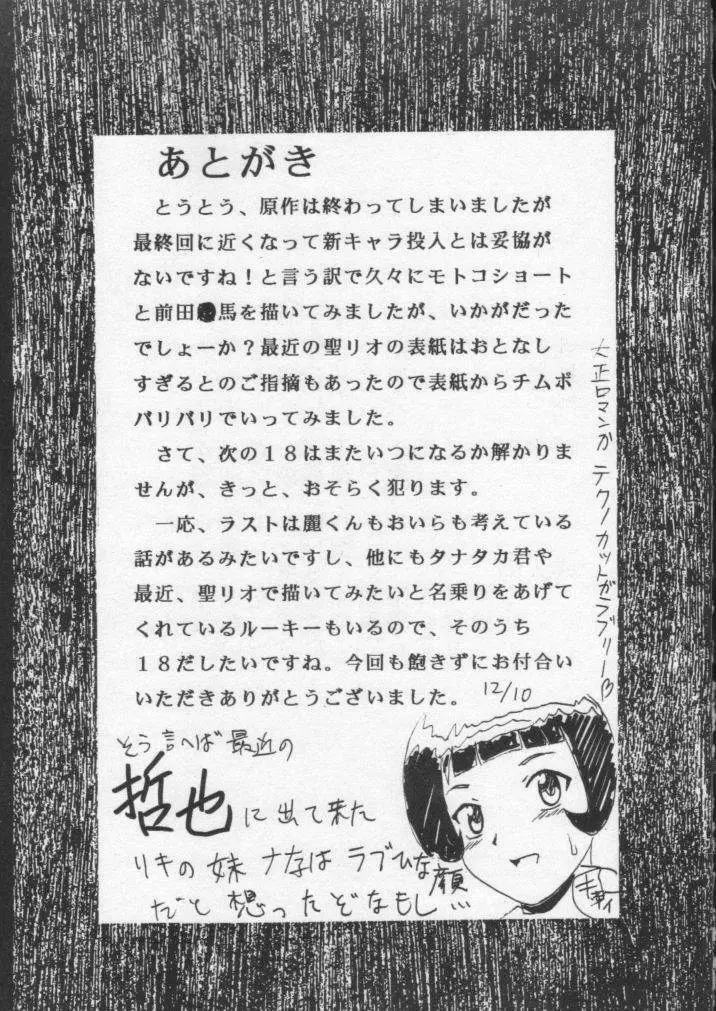 あとがき
とうとう、原作は終わってしまいましたが
最終回に近くなって新キャラ投入とは妥協が
ないですね！と言う訳で久々にモトコショート
と前田●馬を描いてみましたが、いかがだった
でしょーか？最近の聖リオの表紙はおとなし
すぎるとのご指摘もあったので表紙からチムポ
バリバリでいってみました。
さて、次の１８はまたいつになるか解かりま
せんが、きっと、おそらく犯ります。
一応、ラストは麗くんもおいらも考えている
話があるみたいですし、他にもタナタカ君や
最近、聖リオで描いてみたいと名乗りをあげて
くれているルーキーもいるので、そのうち
１８だしたいですね。今回も飽きずにお付合い
いただきありがとうございました。 12/10
大正ロマンが テクノカットがラブリー♡
そう言へば最近の
哲也に出て来た
リキの妹ナナは ラブひな顔
だと想ったぞなもし